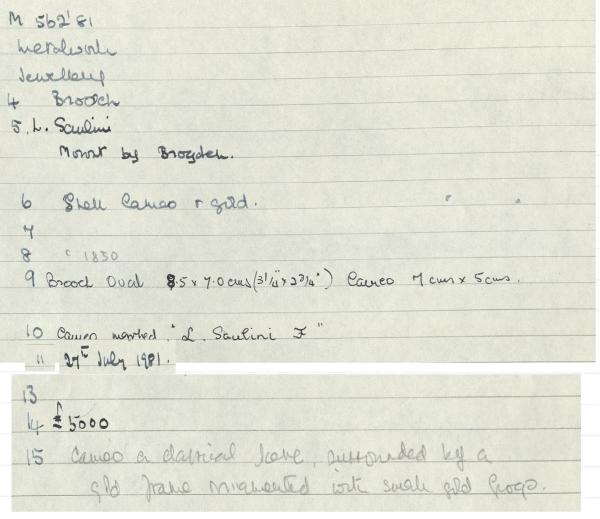 M 562'81
Metalwork
Jewellery
4 Brooch
5. L. Saulini
Mount by Brogden.
6 Shell Cameo + gold.
7
8 c 1850
9 Brooch Oval 8.5 x 7.0 cms (3 1/4" x 2 3/4") Cameo 7 cms x 5 cms.
10 Cameo marked "L. Saulini F"
11 27th July 1981.
13
14 £5000
15 Cameo a classical scene, surrounded by a
gold frame ornamented with small gold frogs.